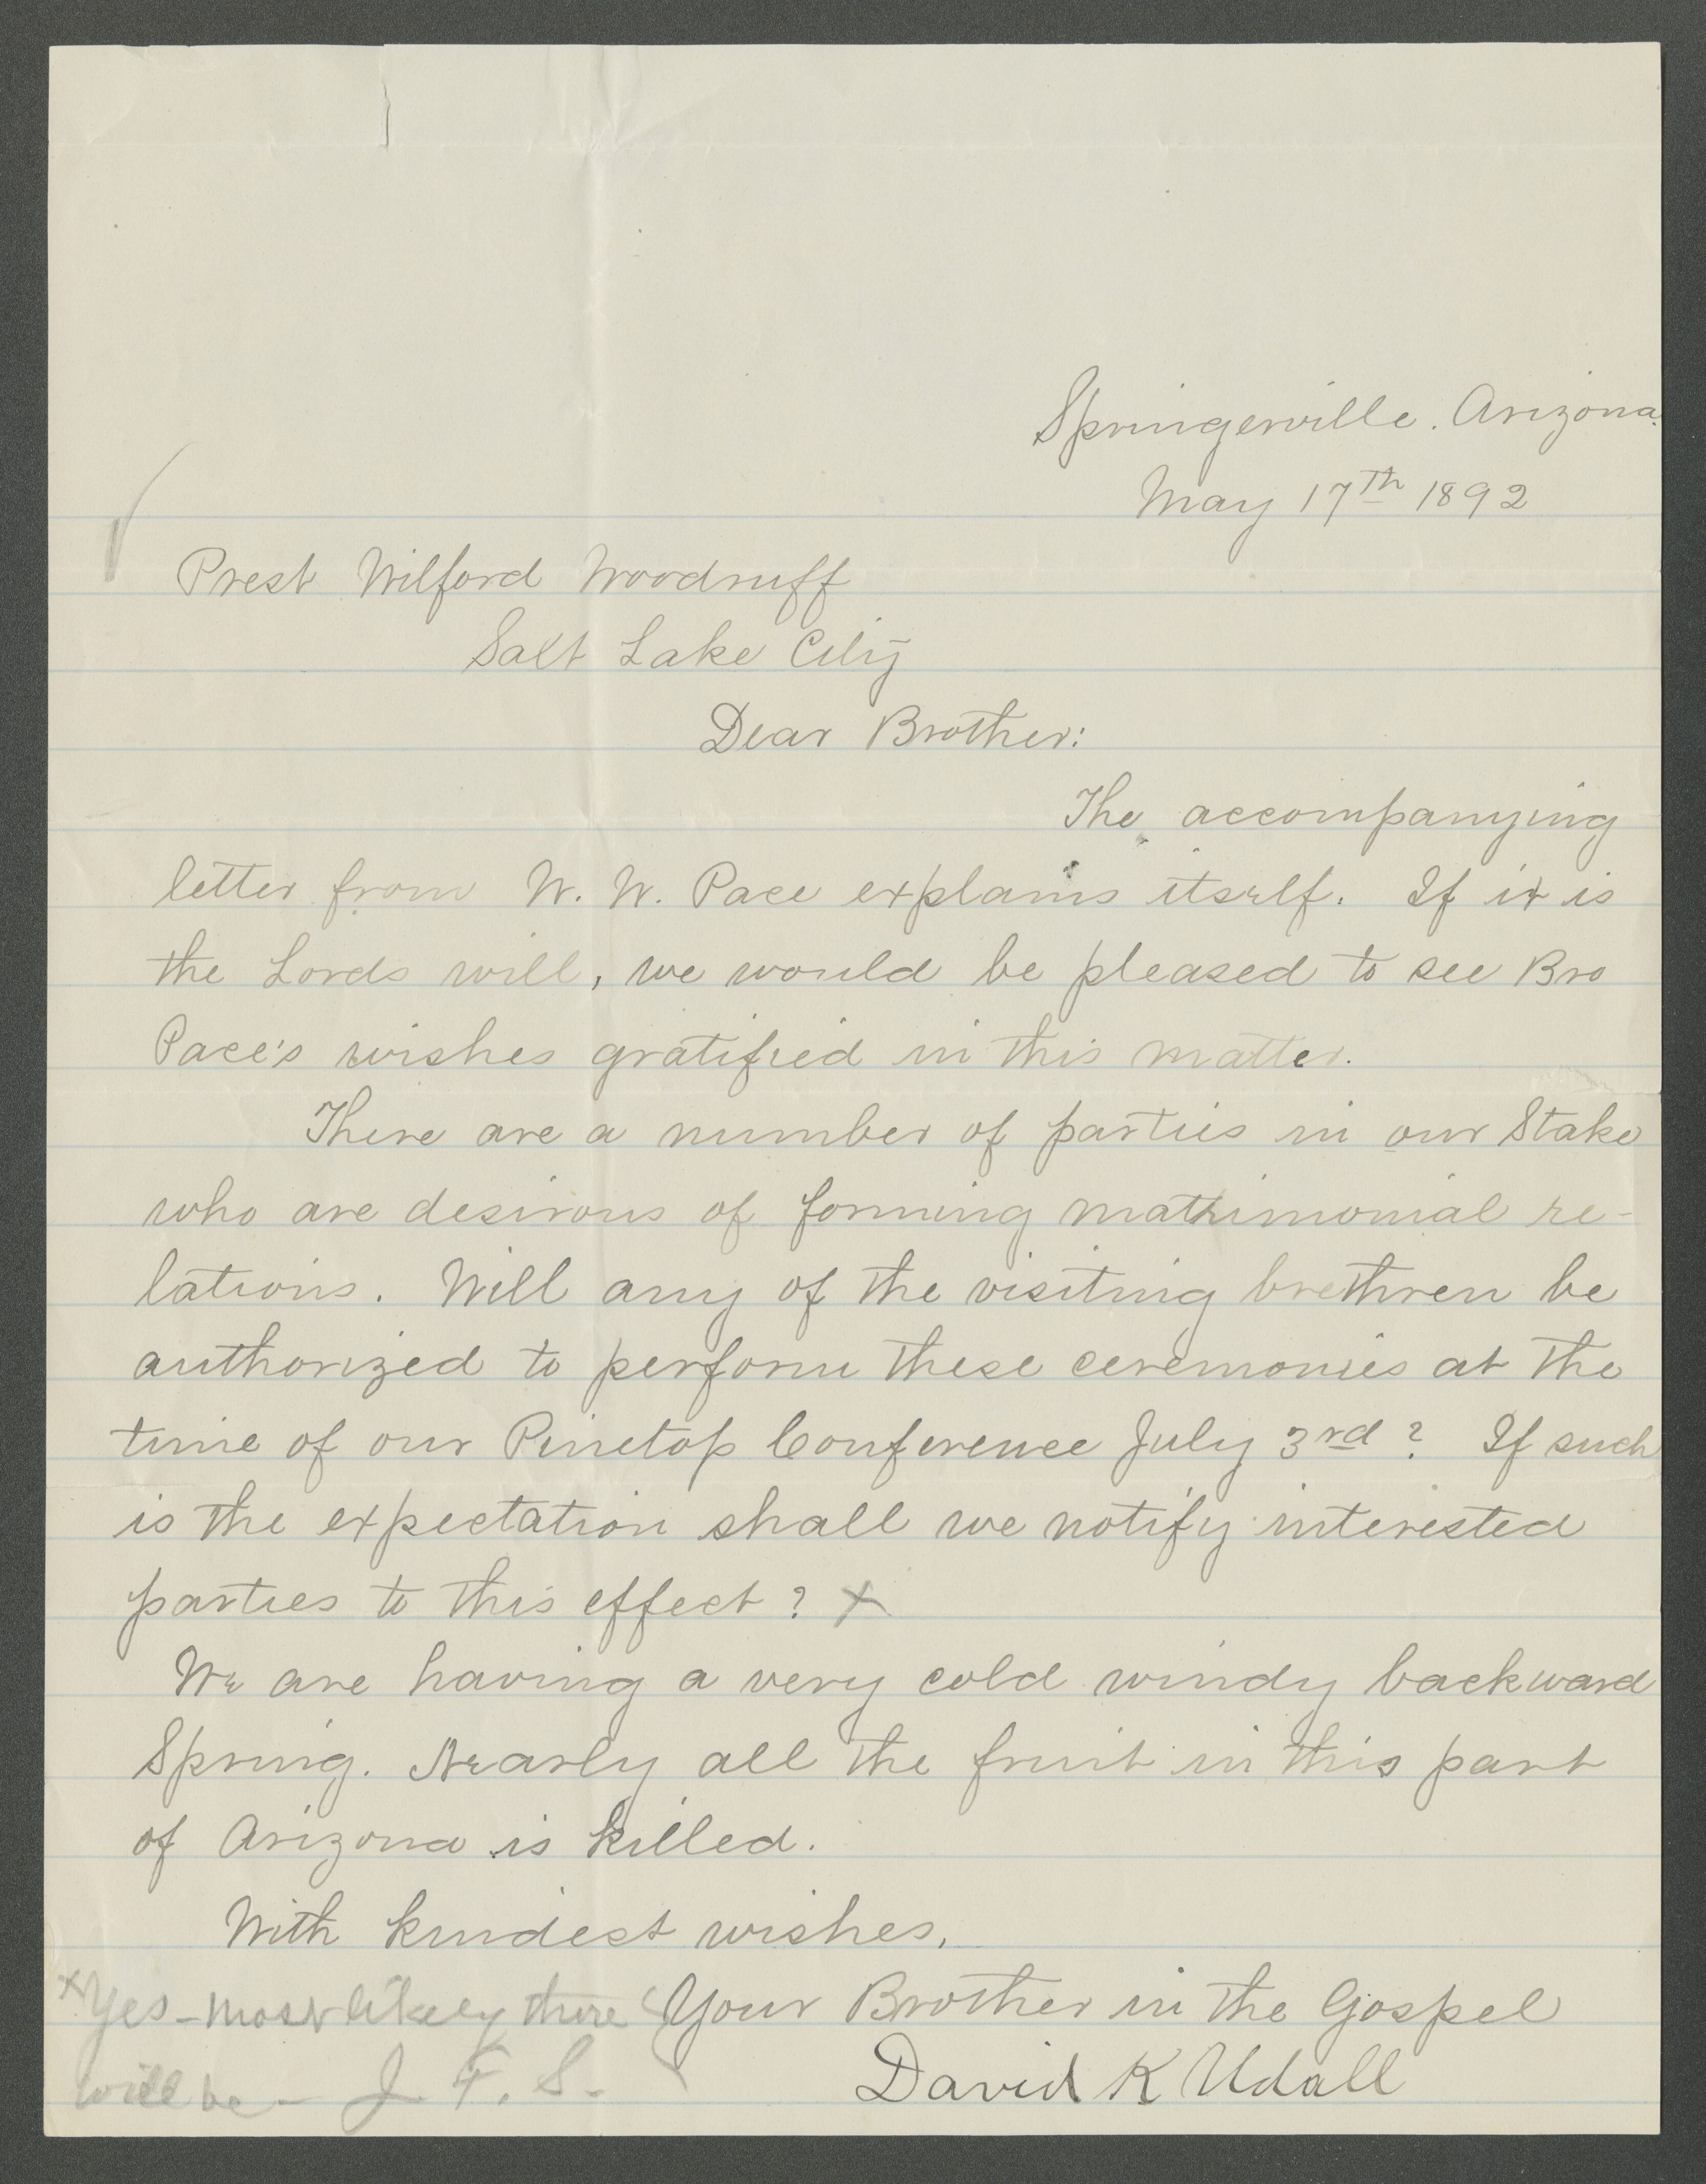 Springerville. Arizona.
May 17th 1892
Prest Wilford Woodruff
Salt Lake City
Dear Brother:
The accompanying
letter from W. W. Pace explains itself. If it is
the Lords will, we would be pleased to see Bro
Pace's wishes gratified in this matter.
There are a number of parties in our Stake
who are desirous of forming matrimonial re-
lations. Will any of the visiting brethren be
authorized to perform these ceremonies at the
time of our Pinetop Conference July 3rd? If such
is the expectation shall we notify interested
parties to this effect? X
We are having a very cold windy backward
Spring. Nearly all the fruit in this part
of Arizona is killed.
With kindest wishes,
Your Brother in the Gospel
David K Udall
X Yes - most likely there
will be - J. F. S.